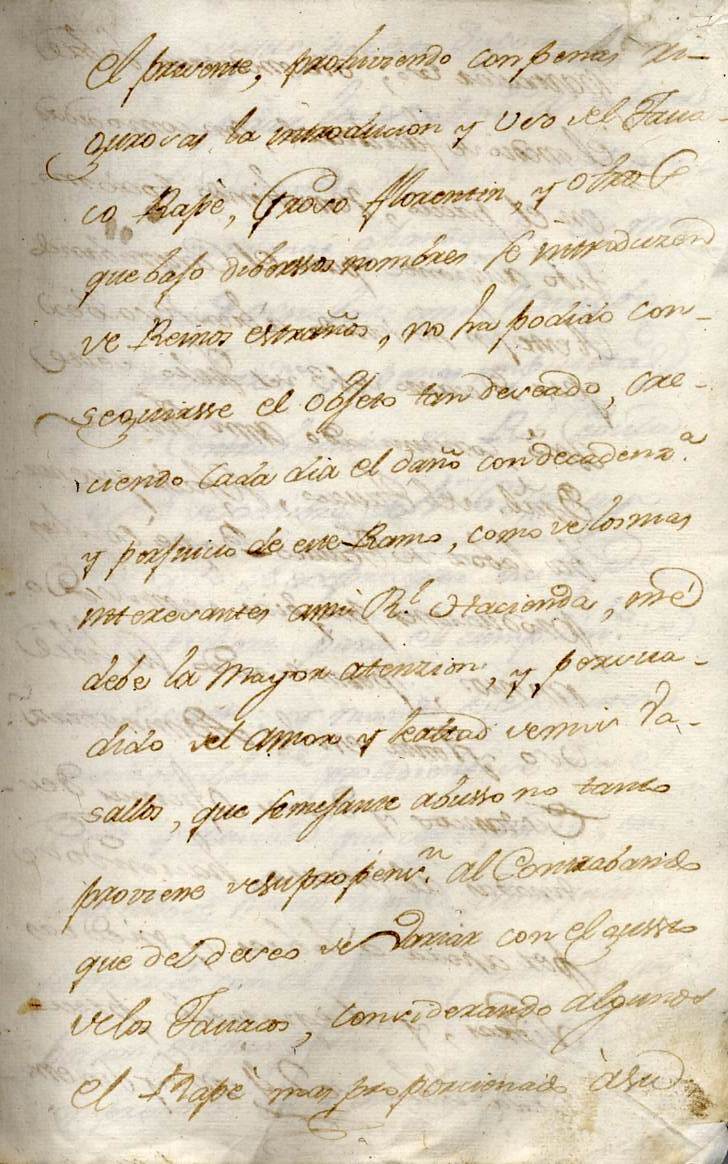 el presente, prohiviendo con penas ri-
gurosas la introducion y Uso del Tava-
co Rapè, Groso florentin, y otros
que bajo diberssos nombres se introduzen
de Reinos estraños, no ha podido con-
seguirsse el objeto tan deseado, cre-
ciendo cada dia el daño con decadenz.ª
y perjuicio de este Ramo, como de los mas
interesantes a mi R.l Hacienda, me
debe la mayor atenzion, y persua-
dido del amor y lealtad de mis Va-
sallos, que semejante abusso no tanto
proviene de su propens.n al Contrabando
que del deseo de Variar con el gusto
de los Tavacos, considerando algunos
el Rapè mas proporcionado à su